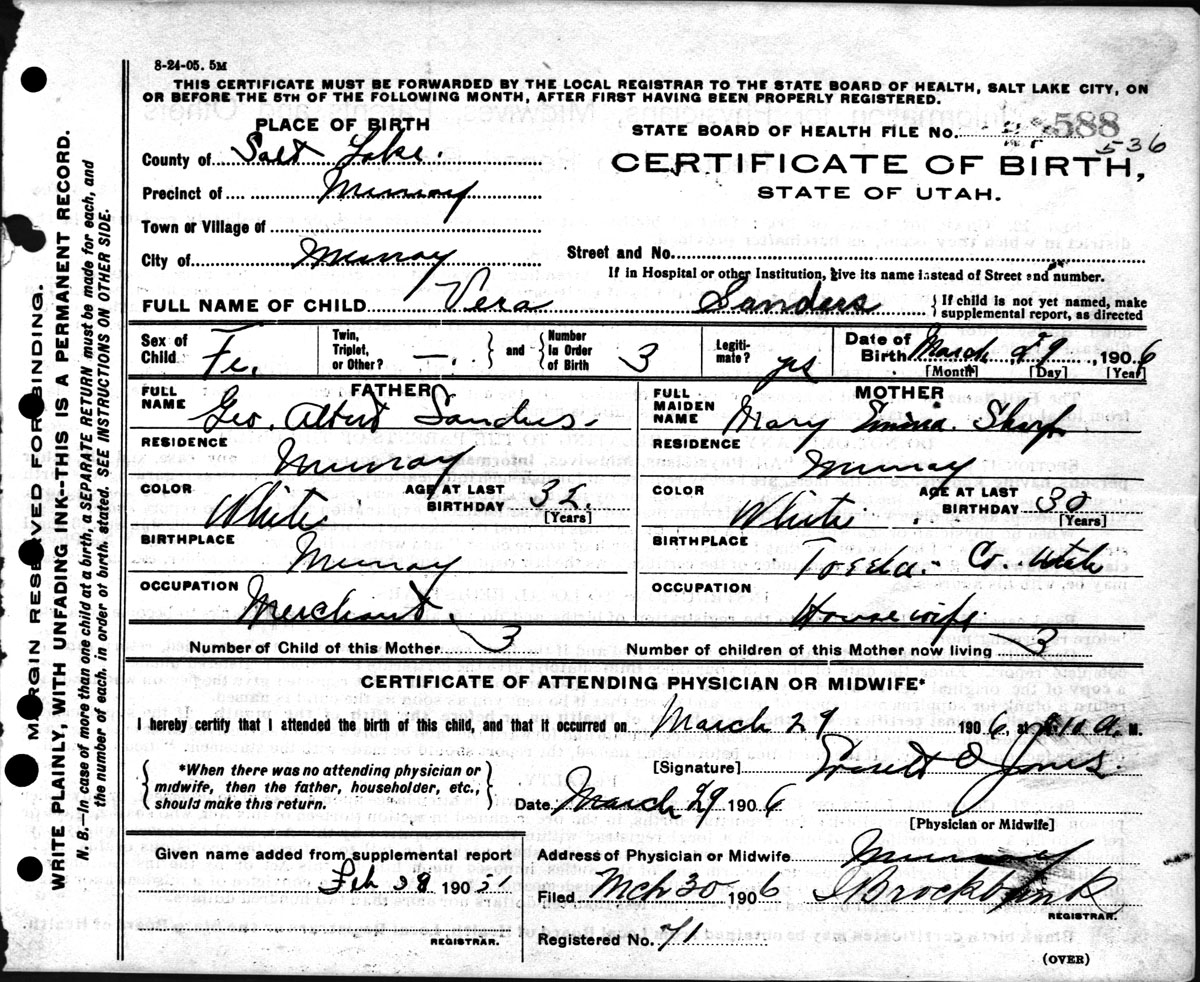 8-24-05. 5M
THIS CERTIFICATE MUST BE FORWARDED BY THE LOCAL REGISTRAR TO THE STATE BOARD OF HEALTH, SALT LAKE CITY, ON
OR BEFORE THE 5TH OF THE FOLLOWING MONTH, AFTER FIRST HAVING BEEN PROPERLY REGISTERED.
PLACE OF BIRTH
County of Salt Lake.
Precinct of Murray
Town or Village of
City of Murray
STATE BOARD OF HEALTH FILE No. 588
536
CERTIFICATE OF BIRTH,
STATE OF UTAH.
Street and No.
If in Hospital or other Institution, give its name instead of Street and number.
FULL NAME OF CHILD Vera Sanders
{If child is not yet named, make
supplemental report, as directed
Sex of Child Fe.
Twin, Triplet, or Other? —. } and { Number in Order of Birth 3
Legiti-mate? yes
Date of Birth March 29, 1906
[Month] [Day] [Year]
FATHER
FULL NAME Geo. Albert Sanders.
RESIDENCE Murray
COLOR White
AGE AT LAST BIRTHDAY
[Years]
BIRTHPLACE Murray
OCCUPATION Merchant.
MOTHER
FULL MAIDEN NAME Mary Emma. Sharp
RESIDENCE Murray
COLOR White.
AGE AT LAST BIRTHDAY 30
[Years]
BIRTHPLACE Co. Utah
OCCUPATION Housewife.
Number of Child of this Mother 3
Number of children of this Mother now living 3
CERTIFICATE OF ATTENDING PHYSICIAN OR MIDWIFE*
I hereby certify that I attended the birth of this child, and that it occurred on March 29 1906, at a. M.
{ *When there was no attending physician or
midwife, then the father, householder, etc.,
should make this return. }
[Signature] Jones.
Date March 29 1906
[Physician or Midwife]
Given name added from supplemental report
Feb 28 190
REGISTRAR.
Address of Physician or Midwife Murray
Filed Mch 30 1906 Brockbank
REGISTRAR.
Registered No. 71
(OVER)
MARGIN RESERVED FOR BINDING.
WRITE PLAINLY, WITH UNFADING INK--THIS IS A PERMANENT RECORD.
N. B.—In case of more than one child at a birth, a SEPARATE RETURN must be made for each, and
the number of each, in order of birth, stated. SEE INSTRUCTIONS ON OTHER SIDE.